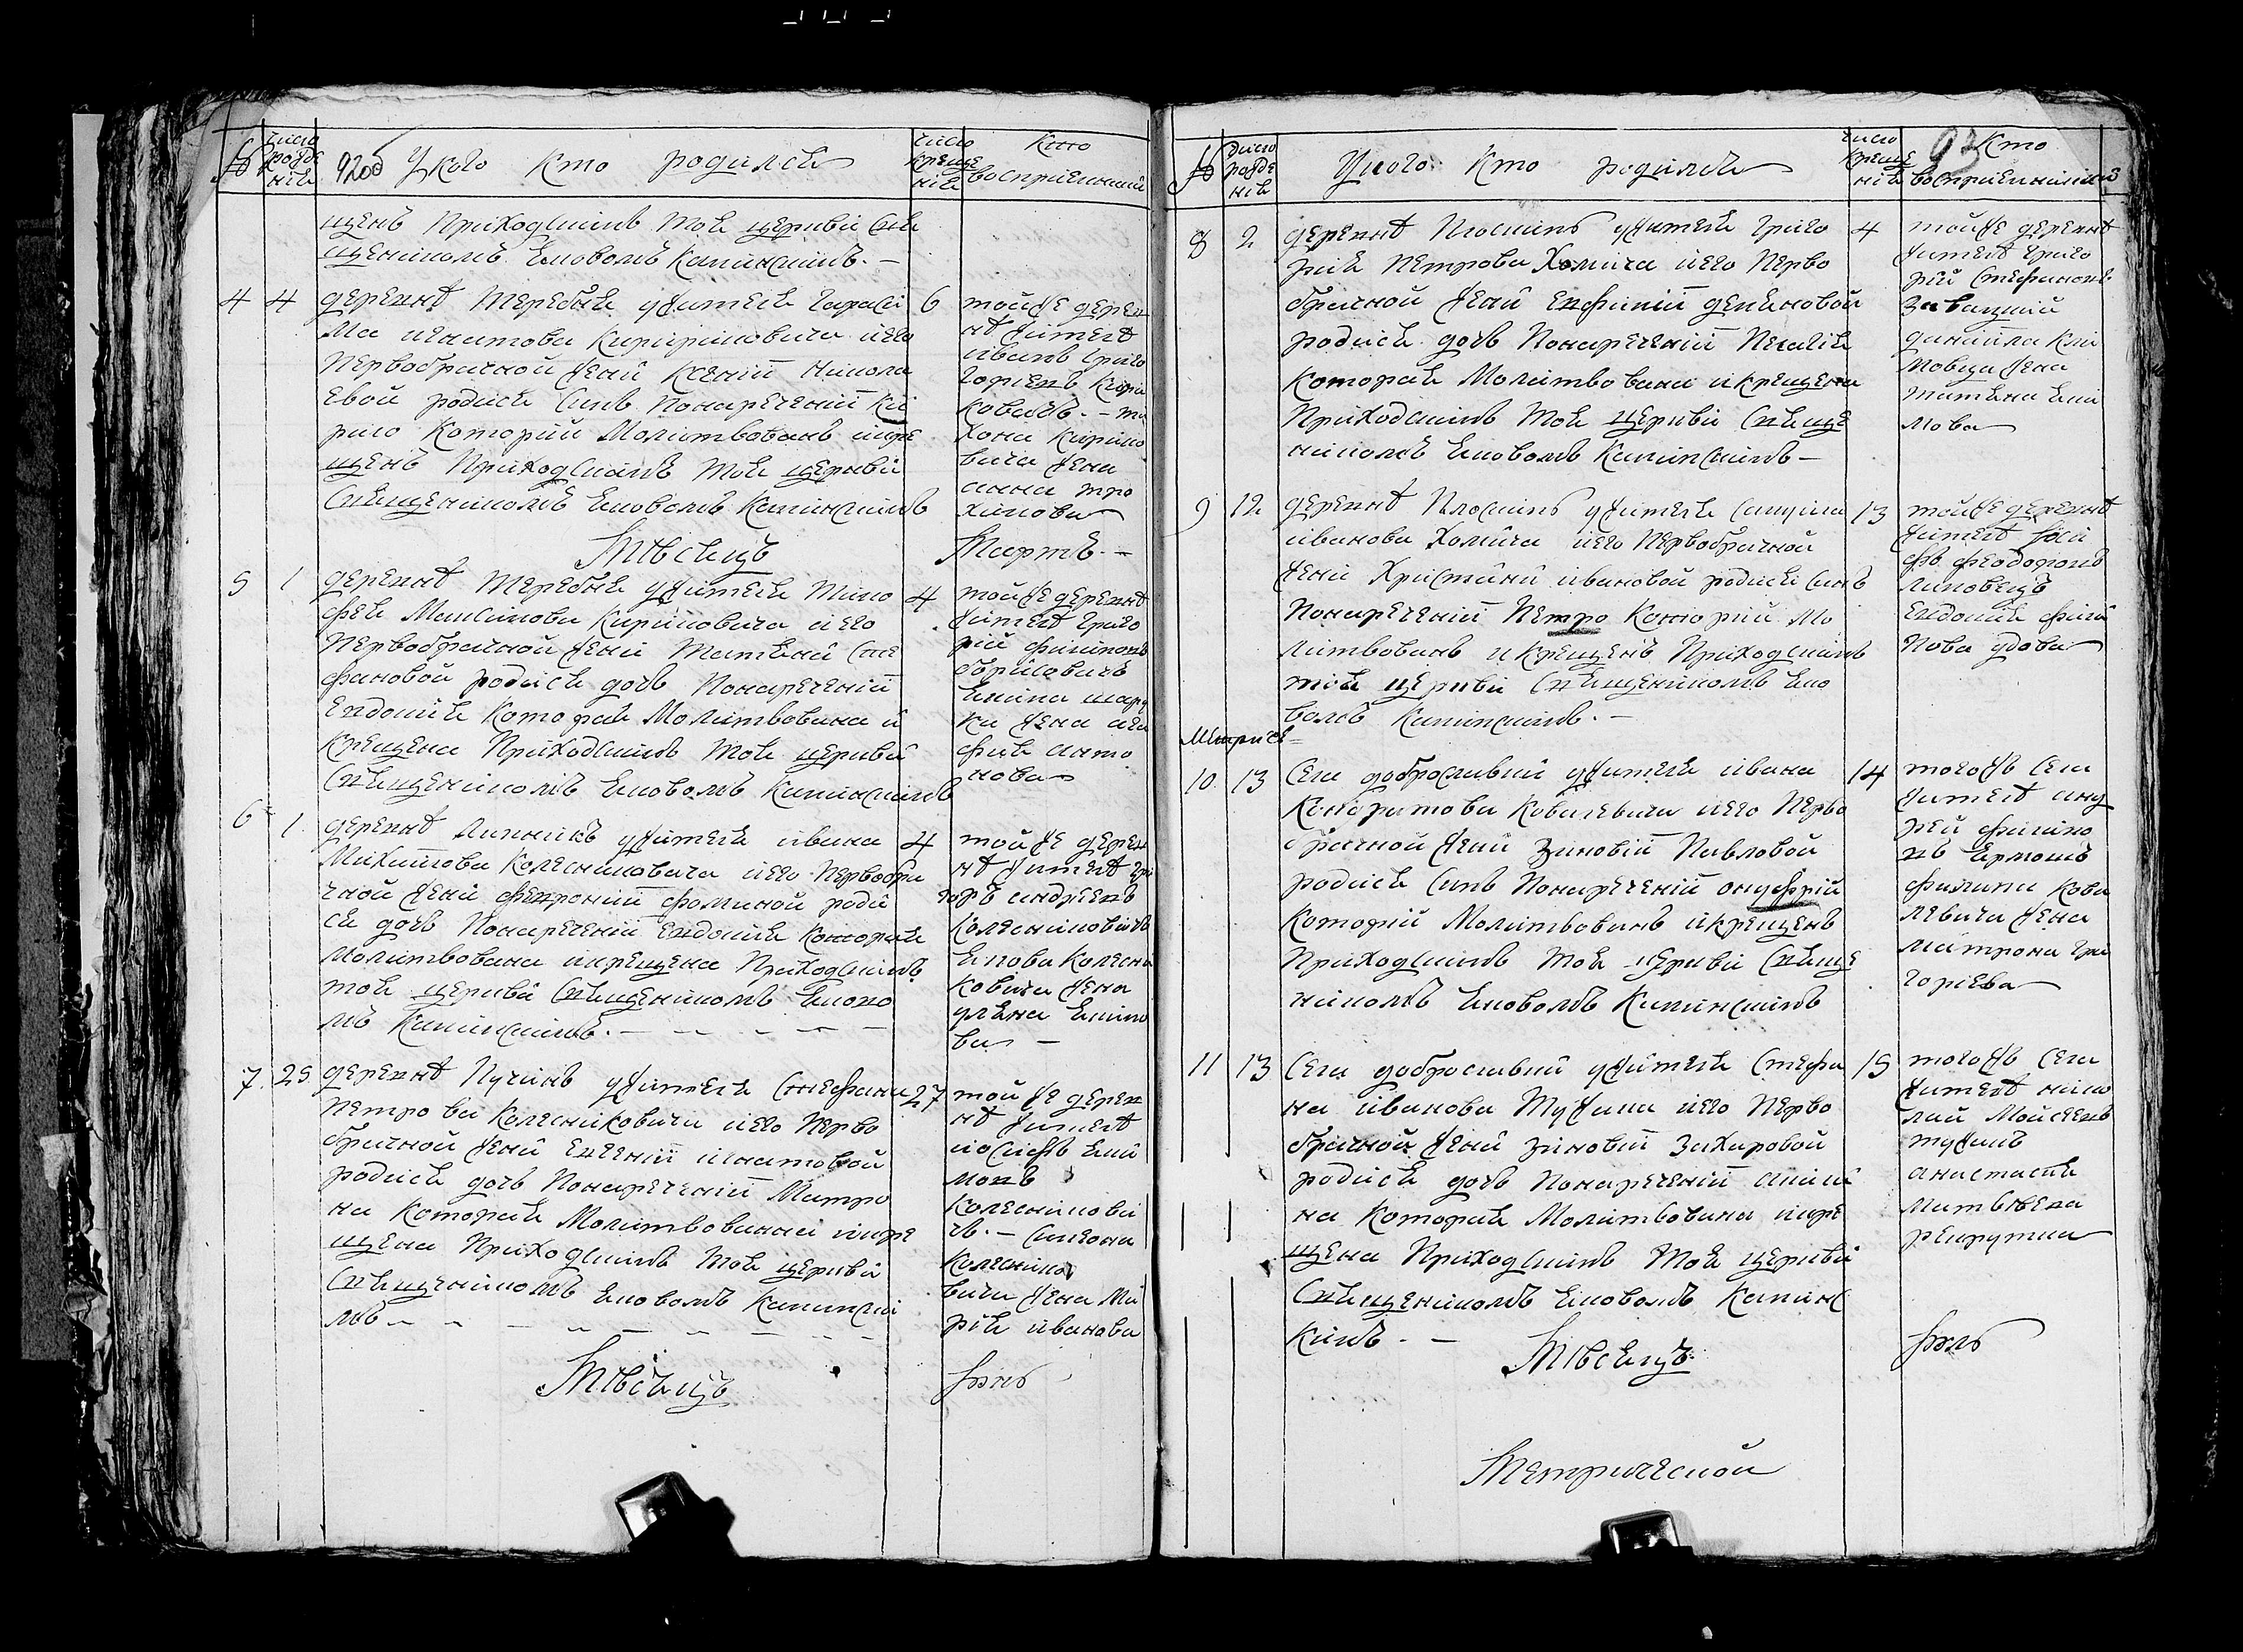 №
число рожде нія
92об У кого кто родился
число креще нія
Кто восприемники
щенъ Приходскимъ тоя церкви Свя
щеникомъ Яковомъ Калинскимъ. —
4 4 деревнѣ Теребня жителя Гараси
ма Игнатова Кириковича иего
Первобрачной жены Ксении Никола
евой родися Сынъ Понаречении Ки
рило Которий Молитвованъ икре
щенъ Приходскимъ тоя церкви
Священикомъ Яковомъ Калинскимъ
6 тойже дерев
нѣ жителѣ
Иванъ Григо
горіевъ Кири
ковичъ. — ти
хона Кирико
вича жена
анна тро
химова
Мѣсяцъ Мартъ. —
5 1 деревнѣ Теребня жителя Тимо
фея Максимова Кириковича иего
Первобрачной жени Татяни Сте
фановой родися дочь Понаречении
Евдокия Которая Молитвована и
крещена Приходскимъ тоя церкви
Священикомъ Яковомъ Калинскимъ
4 тойже деревнѣ
жителѣ Григо
рий Филимонъ
Яхима
ка жена ага
фия Анто
нова
6 1. деревнѣ жителя Ивана
Михайлова Колесниковича иего Первобра
чной жени Февронии Фоминой роди
ся дочь Понаречении Евдокия Которая
Молитвована икрещена Приходскимъ
тоя церкви Священикомъ Яково
мъ Калинскимъ. —
4 тойже дерев
нѣ жителѣ Гри
горъ андреевъ
Колесниковичъ
Якова Колесни
ковича жена
уляна Яким
ва —
7. 25 деревнѣ Пучинъ жителя Стефана
Петрова Колесниковича иего Перво
брачной жени Евгении Игнатовой
родися дочь Понаречении Матро
на Которая Молитвованна икре
щена Приходскимъ тоя церкви
Священикомъ Яковомъ Калински
мъ —
27 той же дерев
нѣ жителѣ
иосифъ Яки
мовъ
Колеснинови
чъ. — Симеона
Колеснико
вича жена Ма
рія иванова
Мѣсяцъ
№
число рожде нія
У кого кто родился
число креще нія
93
Кто восприемники
8 2 деревнѣ Плоскинь жителя Григо
рия Петрова Хомича иего Перво
брачной жени Евфимии демяновой
родися дочь Понаречении Пелагия
Которая Молитвована икрещена
Приходскимъ тоя церкви Свяще
никомъ Яковомъ Калинскимъ —
4 тойже деревнѣ
жителѣ Григо
рий Стефановъ
Завацкий
данийла Кли
мовца жена
татяна Яки
мова
9 12 деревнѣ Плоскинь жителя самуила
иванова Хомича иего Первобрачной
жени Христини ивановой родися Синъ
Понаречении Петро Которий Мо
литвованъ и крещенъ Приходскимъ
тоя церкви Священикомъ Яко
вомъ Калинскимъ. —
13 тойже деревнѣ
жителѣ
фъ феодоровъ
Климовецъ
Евдокия фили
пова удова
10. 13 Села доброславки жителя ивана
Кондратова Ковалевича иего Перво
брачной жени Зиновии Павловой
родися Синъ Понаречении онуфрий
Которий Молитвованъ икрещенъ
Приходскимъ тоя церкви Свяще
никомъ Яковомъ Калинскимъ
14 тогожъ Села
жителѣ анд
рей филимо
въ Ярмошъ
филипа Кова
левича жена
матрона Гри
горіева
11 13 Села доброславки жителя Стефа
на иванова Тужика иего Перво
брачной жени Зиновии Захаровой
родися дочь Понаречении акили
на Которая Молитвована икре
щена Приходскимъ тоя церкви
Священикомъ Яковомъ Калинс
кимъ. —
15 тогожъ Села
жителѣ нико
лай Мойсеевъ
тужикъ
анастасия
Матвѣева
рекрутка
Мѣсяцъ
Метрической